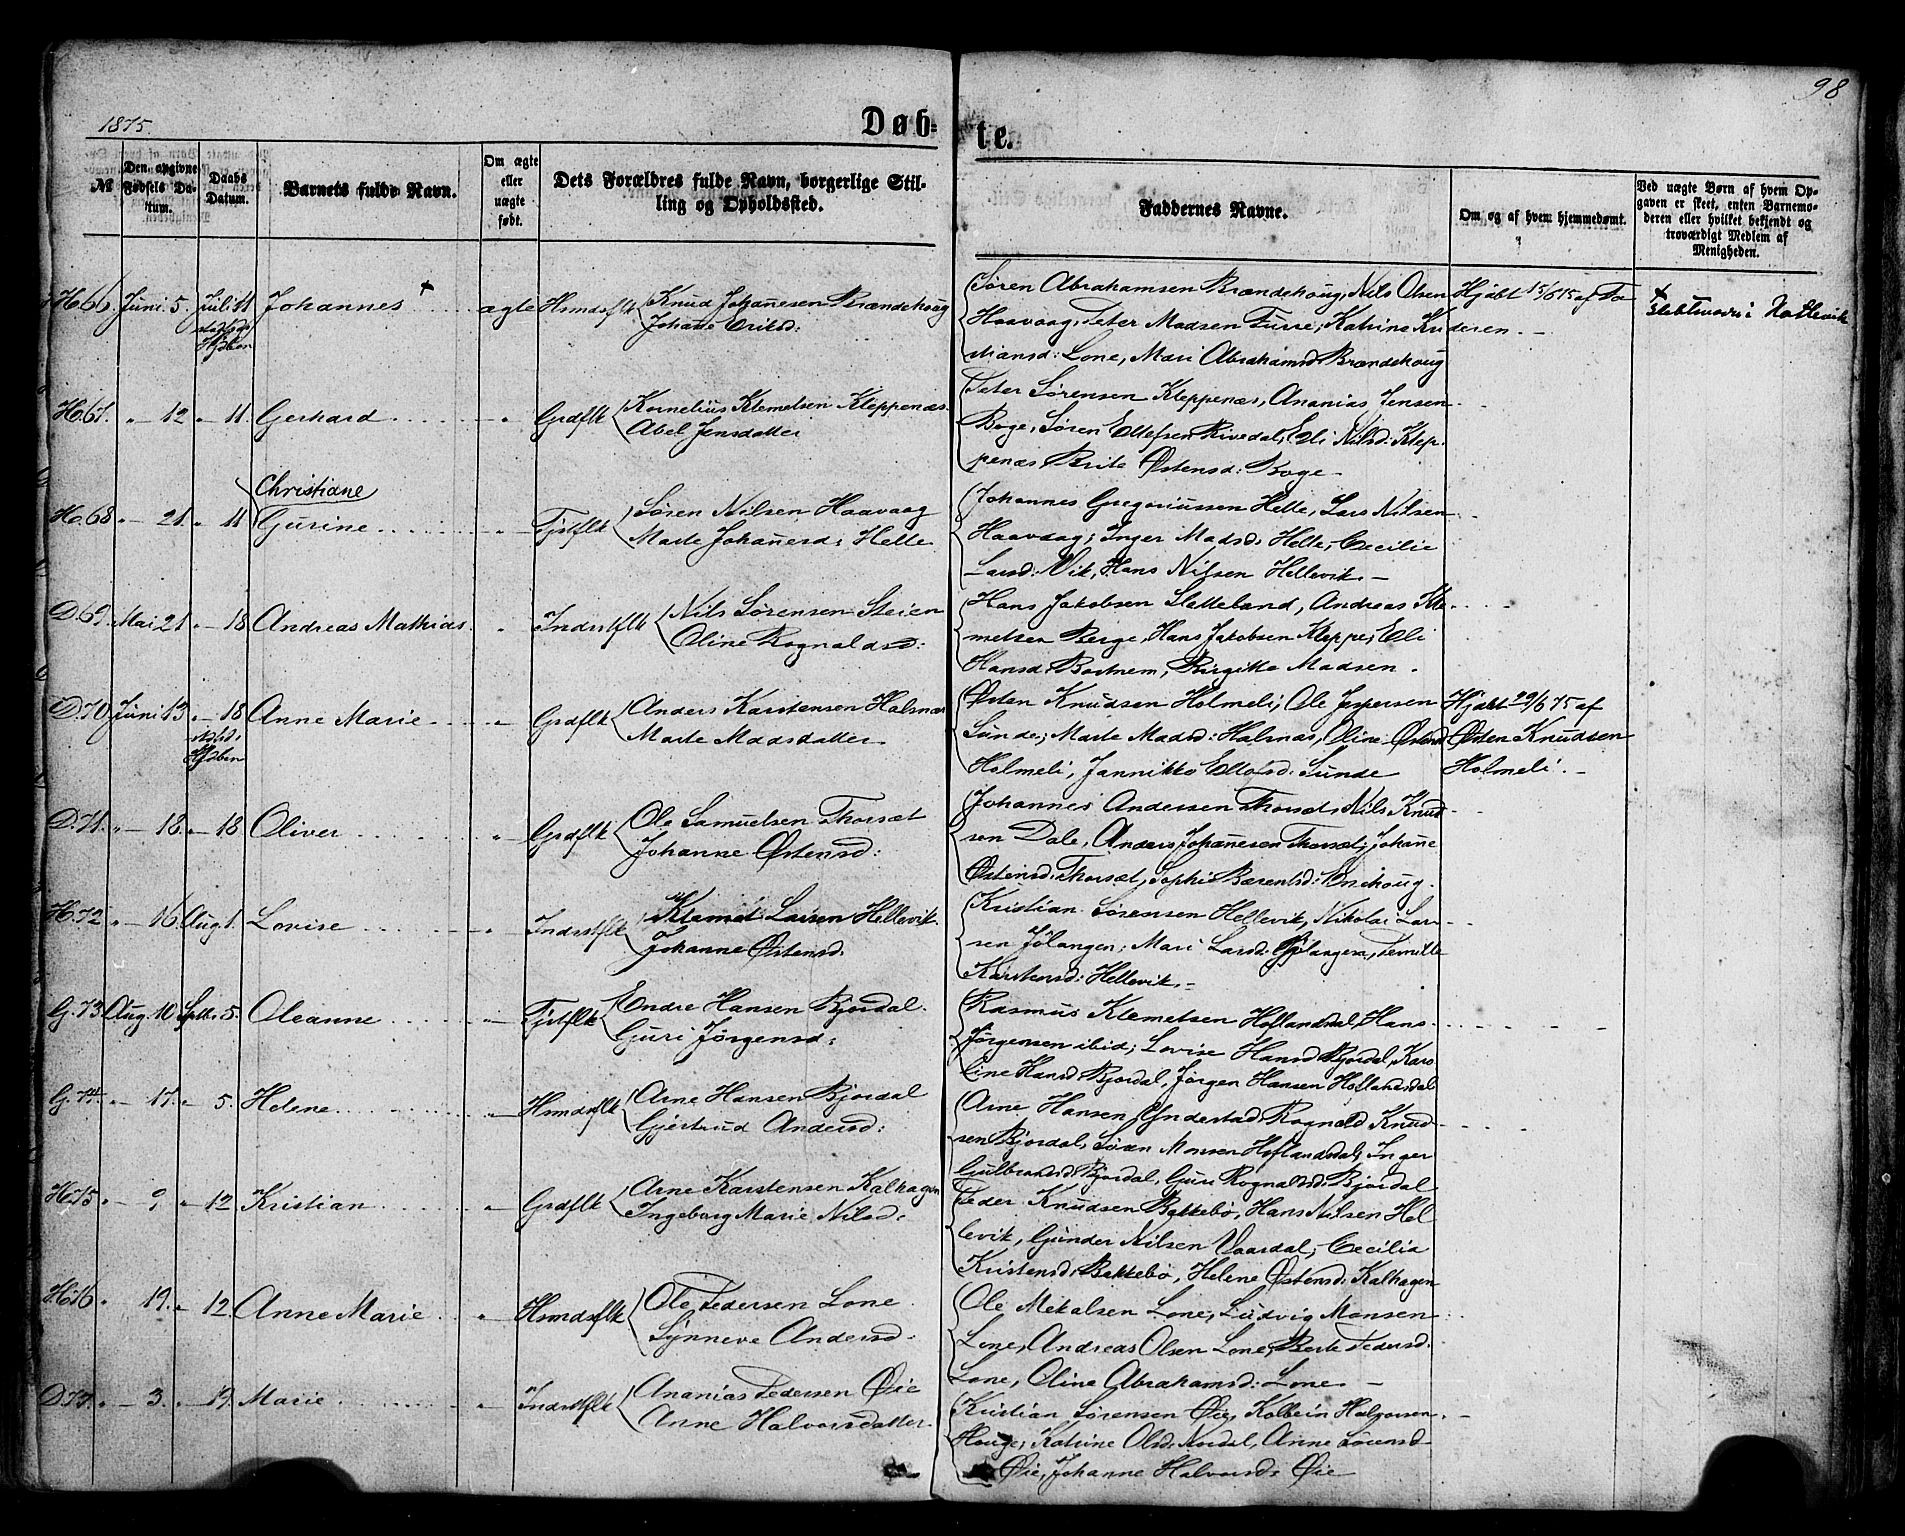 98
1875.
Døb-
te.
№
Den angivne Fødsels Datum.
Daabs Datum.
Barnets fulde Navn.
Om ægte eller uægte født.
Dets Forældres fulde Navn, borgerlige Stilling og Opholdssted.
Faddernes Navne.
Om og af hvem hjemmedøbt.
Ved uægte Børn af hvem Opgaven er skeet, enten Barnemoderen eller hvilket bekjendt og troværdigt Medlem af Menigheden.
H. 66. Juni 5. Juli 11 Johannes + ægte Hsmdsflk Knud Johanesen Brændehoug
Johane Eriksd:
Søren Abrahamsen Brændehoug, Nils Olsen
Haavaag, Peter Madsen Furre, Katrine Kri
stiansd: Lone, Mari Abrahamsd: Brændehoug
Hjdbt 15/6 75 af Fa
deren. -
H. 67. " - 12 " - 11. Gerhard " Grdflk Kornelius Klemetsen Kleppenæs
Abel Jensdatter
Peter Sørensen Kleppenæs, Ananias Jensen
Boge, Søren Ellefsen Rivedal, Eli Nilsd: Klep
penæs Brite Østensd: Boge -
H. 68 " - 21. " 11 Christiane
Gurine " Tjstflk Søren Nilsen Haavaag
Marte Johanesd: Helle
Johannes Gregoriussen Helle, Lars Nilsen
Haavaag, Inger Madsd: Helle, Cecilie
Larsd: Vik, Hans Nilsen Hellevik. -
D. 69. Mai 21 " - 18 Andreas Mathias " Indrstflk Nils Sørensen Steien
Oline Rognaldsd:
Hans Jakobsen Sletteland, Andreas Kle
metsen Berge, Hans Jakobsen Kleppe, Eli
Hansd: Bortnem, Birgitte Madsen.
D. 70 Juni 13 " - 18 Anne Marie " Grdflk Anders Karstensen Halsnæs
Marte Madsdatter
Østen Knudsen Holmeli, Ole Jespersen
Sunde, Marte Madsd: Halsnæs, Oline Østensd
Holmeli, Jannikke Ellefsd: Sunde
Hjdbt 29/6 75 af
Østen Knudsen
Holmeli. -
D. 71. " - 18. " - 18 Oliver " Grdflk Ole Samuelsen Thorsæt
Johanne Østensd:
Johannes Andersen Thorsæt, Nils Knud
sen Dale, Anders Johanesen Thorsæt, Johane
Østensd: Thorsæt, Sophi Bærentsd:
H. 72 " - 16 Aug 1. Lovise " Indrstflk Klemet Larsen Hellevik
Johanne Østensd.
Kristian Sørensen Hellevik, Nikolai Lar
sen Mari Larsd: Pernille
Karstensd: Hellevik. -
G. 73. Aug. 10 Septbr 5. Oleanne " Tjstflk Endre Hansen Bjordal
Guri Jørgensd:
Rasmus Klemetsen Hoflandsdal, Hans
Jørgensen ibid; Lovise Hansd Bjordal, Kar
line Hansd: Bjordal, Jørgen Hansen Hoflandsdal
G. 74. " - 17. " 5. Helene " Hsmdsflk Arne Hansen Bjordal
Gjertrud Andersd:
Arne Hansen Yndestad, Rognald Knud
sen Bjordal, Søren Monsen Hoflandsdal, Inger
Gulbrandsd: Bjordal, Guri Rognaldsd: Bjordal
H. 75 " - 9 " - 12 Kristian " Grdflk Arne Karstensen Kalhagen
Ingeborg Marie Nilsd:
Peder Knudsen Bakkebø, Hans Nilsen Hel
levik, Gunder Nilsen Vaardal, Cecilia
Kristensd: Bakkebø, Helene Østensd: Kalhagen
H. 76 " 19. " 12. Anne Marie " Hsmdsflk Ole Pedersen Lone
Synneve Andersd:
Ole Mikalsen Lone, Ludvig Monsen
Lone, Andreas Olsen Lone, Berte Pedersd:
Lone, Oline Abrahamsd: Lone. -
D. 77. " - 3. " 19. Marie " Indrstflk Ananias Pedersen Øie
Anne Halvorsdatter
Kristian Sørensen Øie, Kolbein Halvorsen
Houge, Katrine Olsd: Nordal, Anne Sørensd
Øie, Johanne Halvorsd: Øie